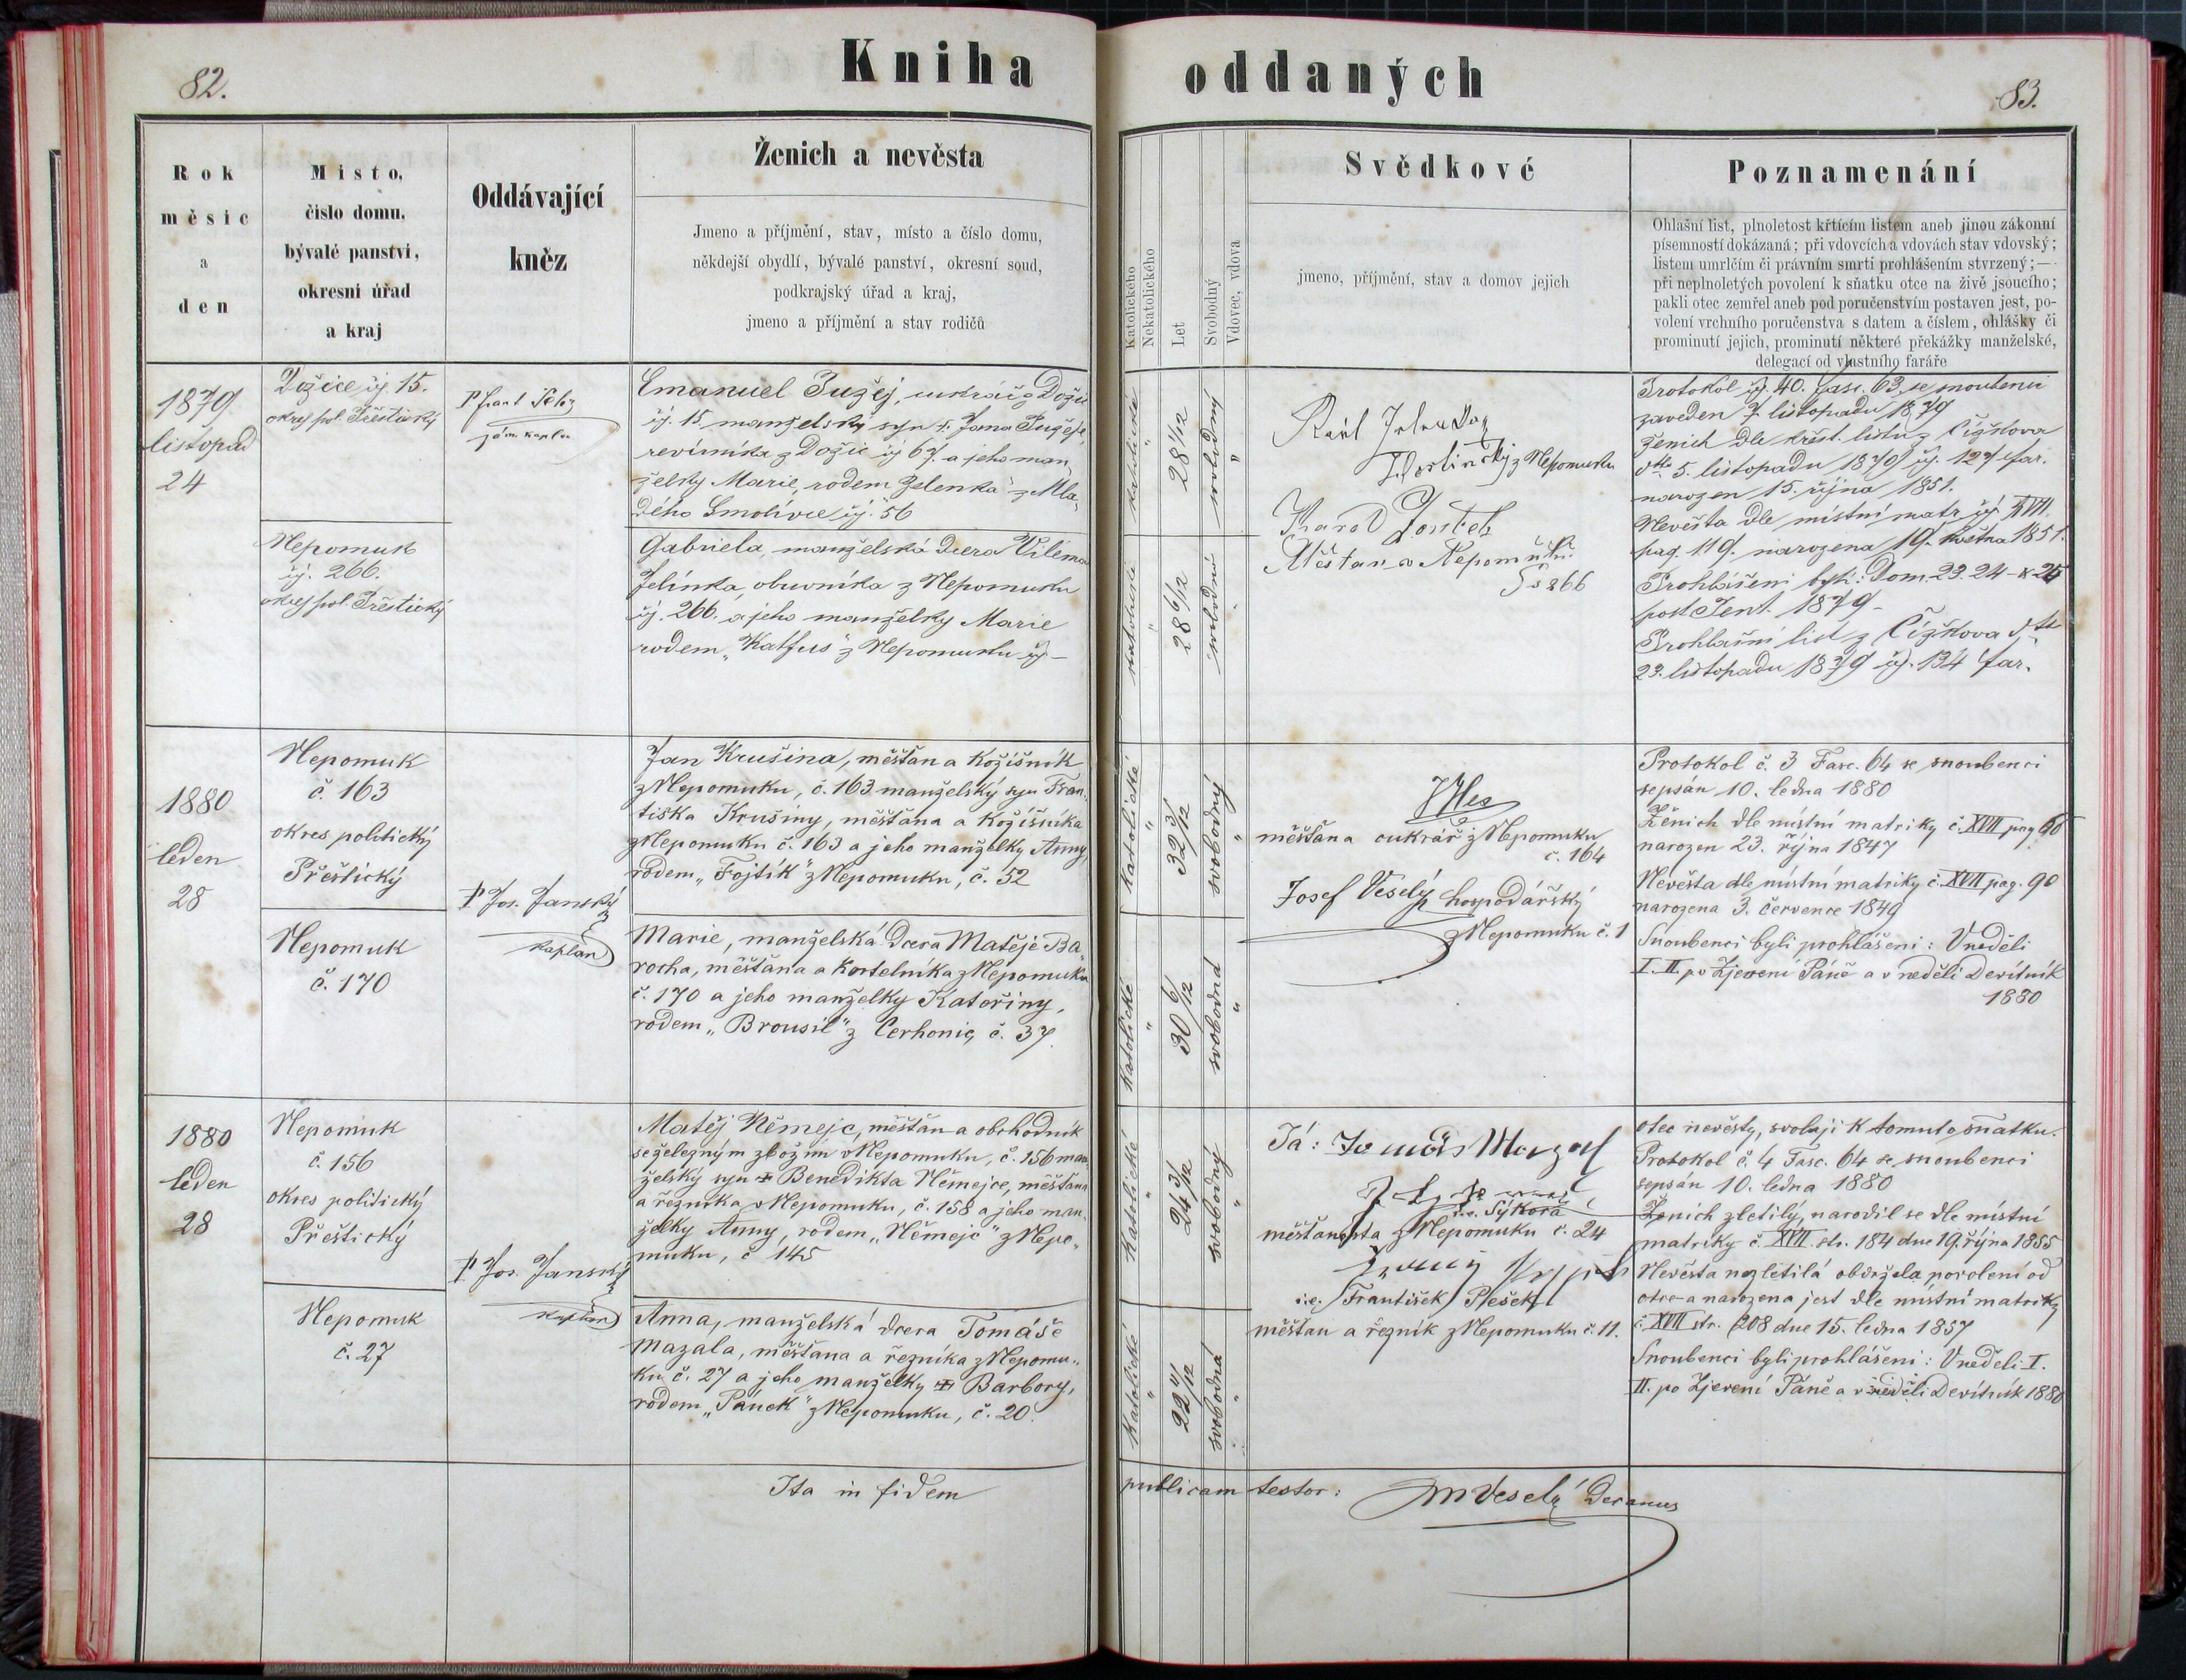 82.
Kniha oddaných
83.
Rok
měsíc
a
den
Místo,
číslo domu,
bývalé panství,
okresní úřad
a kraj
Oddávající
kněz
Ženich a nevěsta
Jmeno a příjmění, stav, místo a číslo domu,
někdejší obydlí, bývalé panství, okresní soud,
podkrajský úřad a kraj,
jmeno a příjmění a stav rodičů
Katolického
Nekatolického
Let
Svobodný
Vdovec, vdova
Svědkové
jmeno, příjmění, stav a domov jejich
Poznamenání
Ohlašní list, plnoletost křtícím listem aneb jinou zákonní
písemností dokázaná; při vdovcích a vdovách stav vdovský;
listem umrlčím či právním smrti prohlášením stvrzený;—
při neplnoletých povolení k sňatku otce na živě jsoucího;
pakli otec zemřel aneb pod poručenstvím postaven jest, po-
volení vrchního poručenstva s datem a číslem, ohlášky či
prominutí jejich, prominutí některé překážky manželské,
delegací od vlastního faráře
1879
listopad
24
Dožice čj. 15.
okres pol. Přeštický
Nepomuk
čj. 266.
okres pol. Přeštický
P. Frant
zám. kaplan
Emanuel Tužej, z Dožic
čj. 15 manželský syn † Jana Tužeje,
revírníka z Dožic čj 67. a jeho man
želky Marie, rodem Zelenka z Mla
dého Smolivce čj. 56
Gabriela, manželská dcera Viléma
Jelínka, obuvníka z Nepomuku
čj. 266. a jeho manželky Marie
rodem „Katfus" z Nepomuku čj –
katolické "
28 1/12
svobodný "
katolické "
28 6/12
svobodná "
Karel
z Nepomuku
Karel
Měšťan v Nepomuku
266
Protokol čj. 40. fasc. 63. se snoubenci
zaveden 7. listopadu 1879
Ženich dle křest. listu z Čížkova
dto 5. listopadu 1879 čj. 127 far.
narozen 15. října 1851.
Nevěsta dle místní matr. čj XVII.
pag. 119. narozena 19. května 1851.
Prohlášeni byli: Dom. 23. 24 – & 25
post Pent. 1879 –
Prohlašní list z Čížkova dto
23. listopadu 1879 čj. 134 far.
1880
leden
28
Nepomuk
č. 163
okres politický
Přeštický
Nepomuk
č. 170
P. Jos. Janský
kaplan
Jan Krušina, měšťan a kožišník
z Nepomuku, č. 163 manželský syn Fran-
tiška Krušiny, měšťana a kožišníka
z Nepomuku č. 163 a jeho manželky Anny,
rodem „Fojtík" z Nepomuku, č. 52
Marie, manželská dcera Matěje Ba-
rocha, měšťana a kostelníka z Nepomuku
č. 170 a jeho manželky Kateřiny,
rodem „Brousil" z Čerhonic, č. 37.
katolické "
32 3/12
svobodný "
katolické "
30 6/12
svobodná "
měšťan a cukrář z Nepomuku
č. 164
Josef Veselý hospodářský
z Nepomuku č. 1
Protokol č. 3 Fasc. 64 se snoubenci
sepsán 10. ledna 1880
Ženich dle místní matriky č. XVII pag 60
narozen 23. října 1847
Nevěsta dle místní matriky č. XVII pag. 90
narozena 3. července 1849
Snoubenci byli prohlášeni: V neděli
I. II. po Zjevení Páně a v neděli Devítník
1880
1880
leden
28
Nepomuk
č. 156
okres politický
Přeštický
Nepomuk
č. 27
P. Jos. Janský
kaplan
Matěj Němejc, měšťan a obchodník
se železným zbožím v Nepomuku, č. 156 man-
želský syn † Benedikta Němejce, měšťana
a řezníka v Nepomuku, č. 158 a jeho man-
želky Anny, rodem „Němejc" z Nepo-
muku, č 145
Anna, manželská dcera Tomáše
Mazala, měšťana a řezníka z Nepomu-
ku č. 27 a jeho manželky † Barbory,
rodem „Pánek" z Nepomuku, č. 20.
katolické "
24 3/12
svobodný "
katolické "
22 11/12
svobodná "
Já: Tomáš Mazal
i.e. Sýkora
z Nepomuku č. 24
i.e. František Plešek
měšťan a řezník z Nepomuku č. 11.
otec nevěsty, svoluji k tomuto sňatku.
Protokol č. 4 Fasc. 64 se snoubenci
sepsán 10. ledna 1880
Ženich zletilý, narodil se dle místní
matriky č. XVII. str. 184 dne 19. října 1855
Nevěsta nezletilá obdržela povolení od
otce a narozena jest dle místní matriky
č. XVII str. 208 dne 15. ledna 1857
Snoubenci byli prohlášeni: V neděli I.
II. po Zjevení Páně a v neděli Devítník 1880
Ita in fidem publicam testor: Veselý Decanus